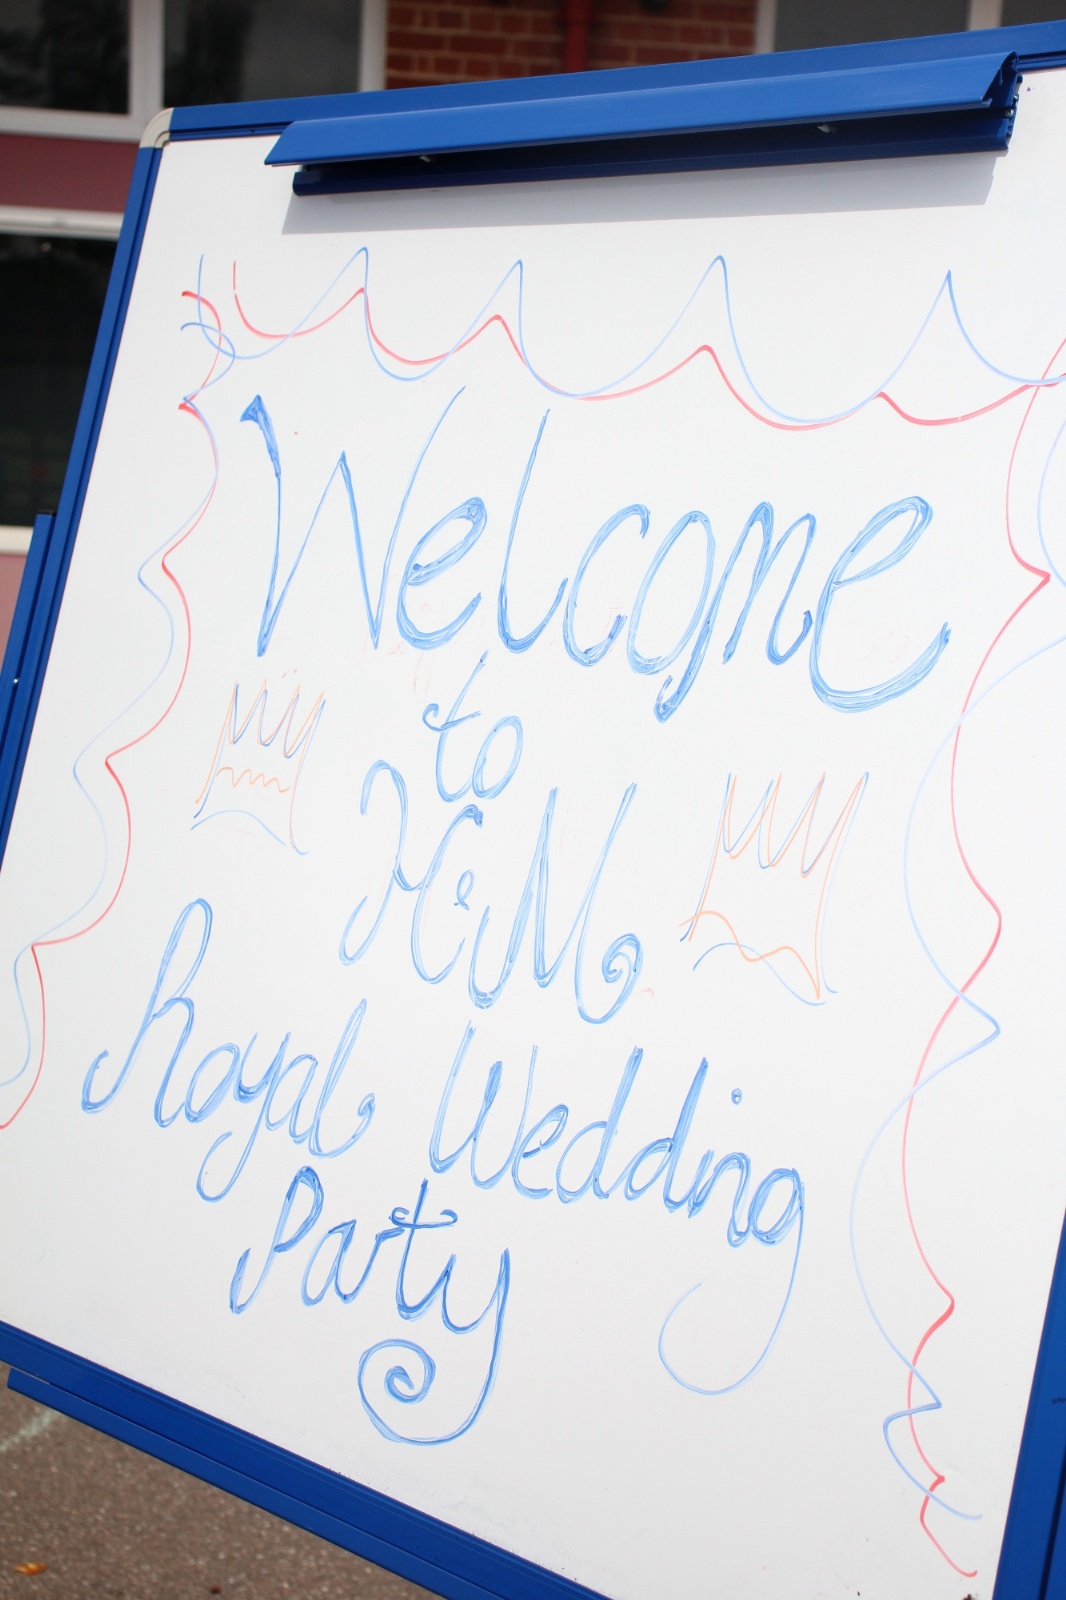 Welcome
to
H&M
Royal Wedding
Party